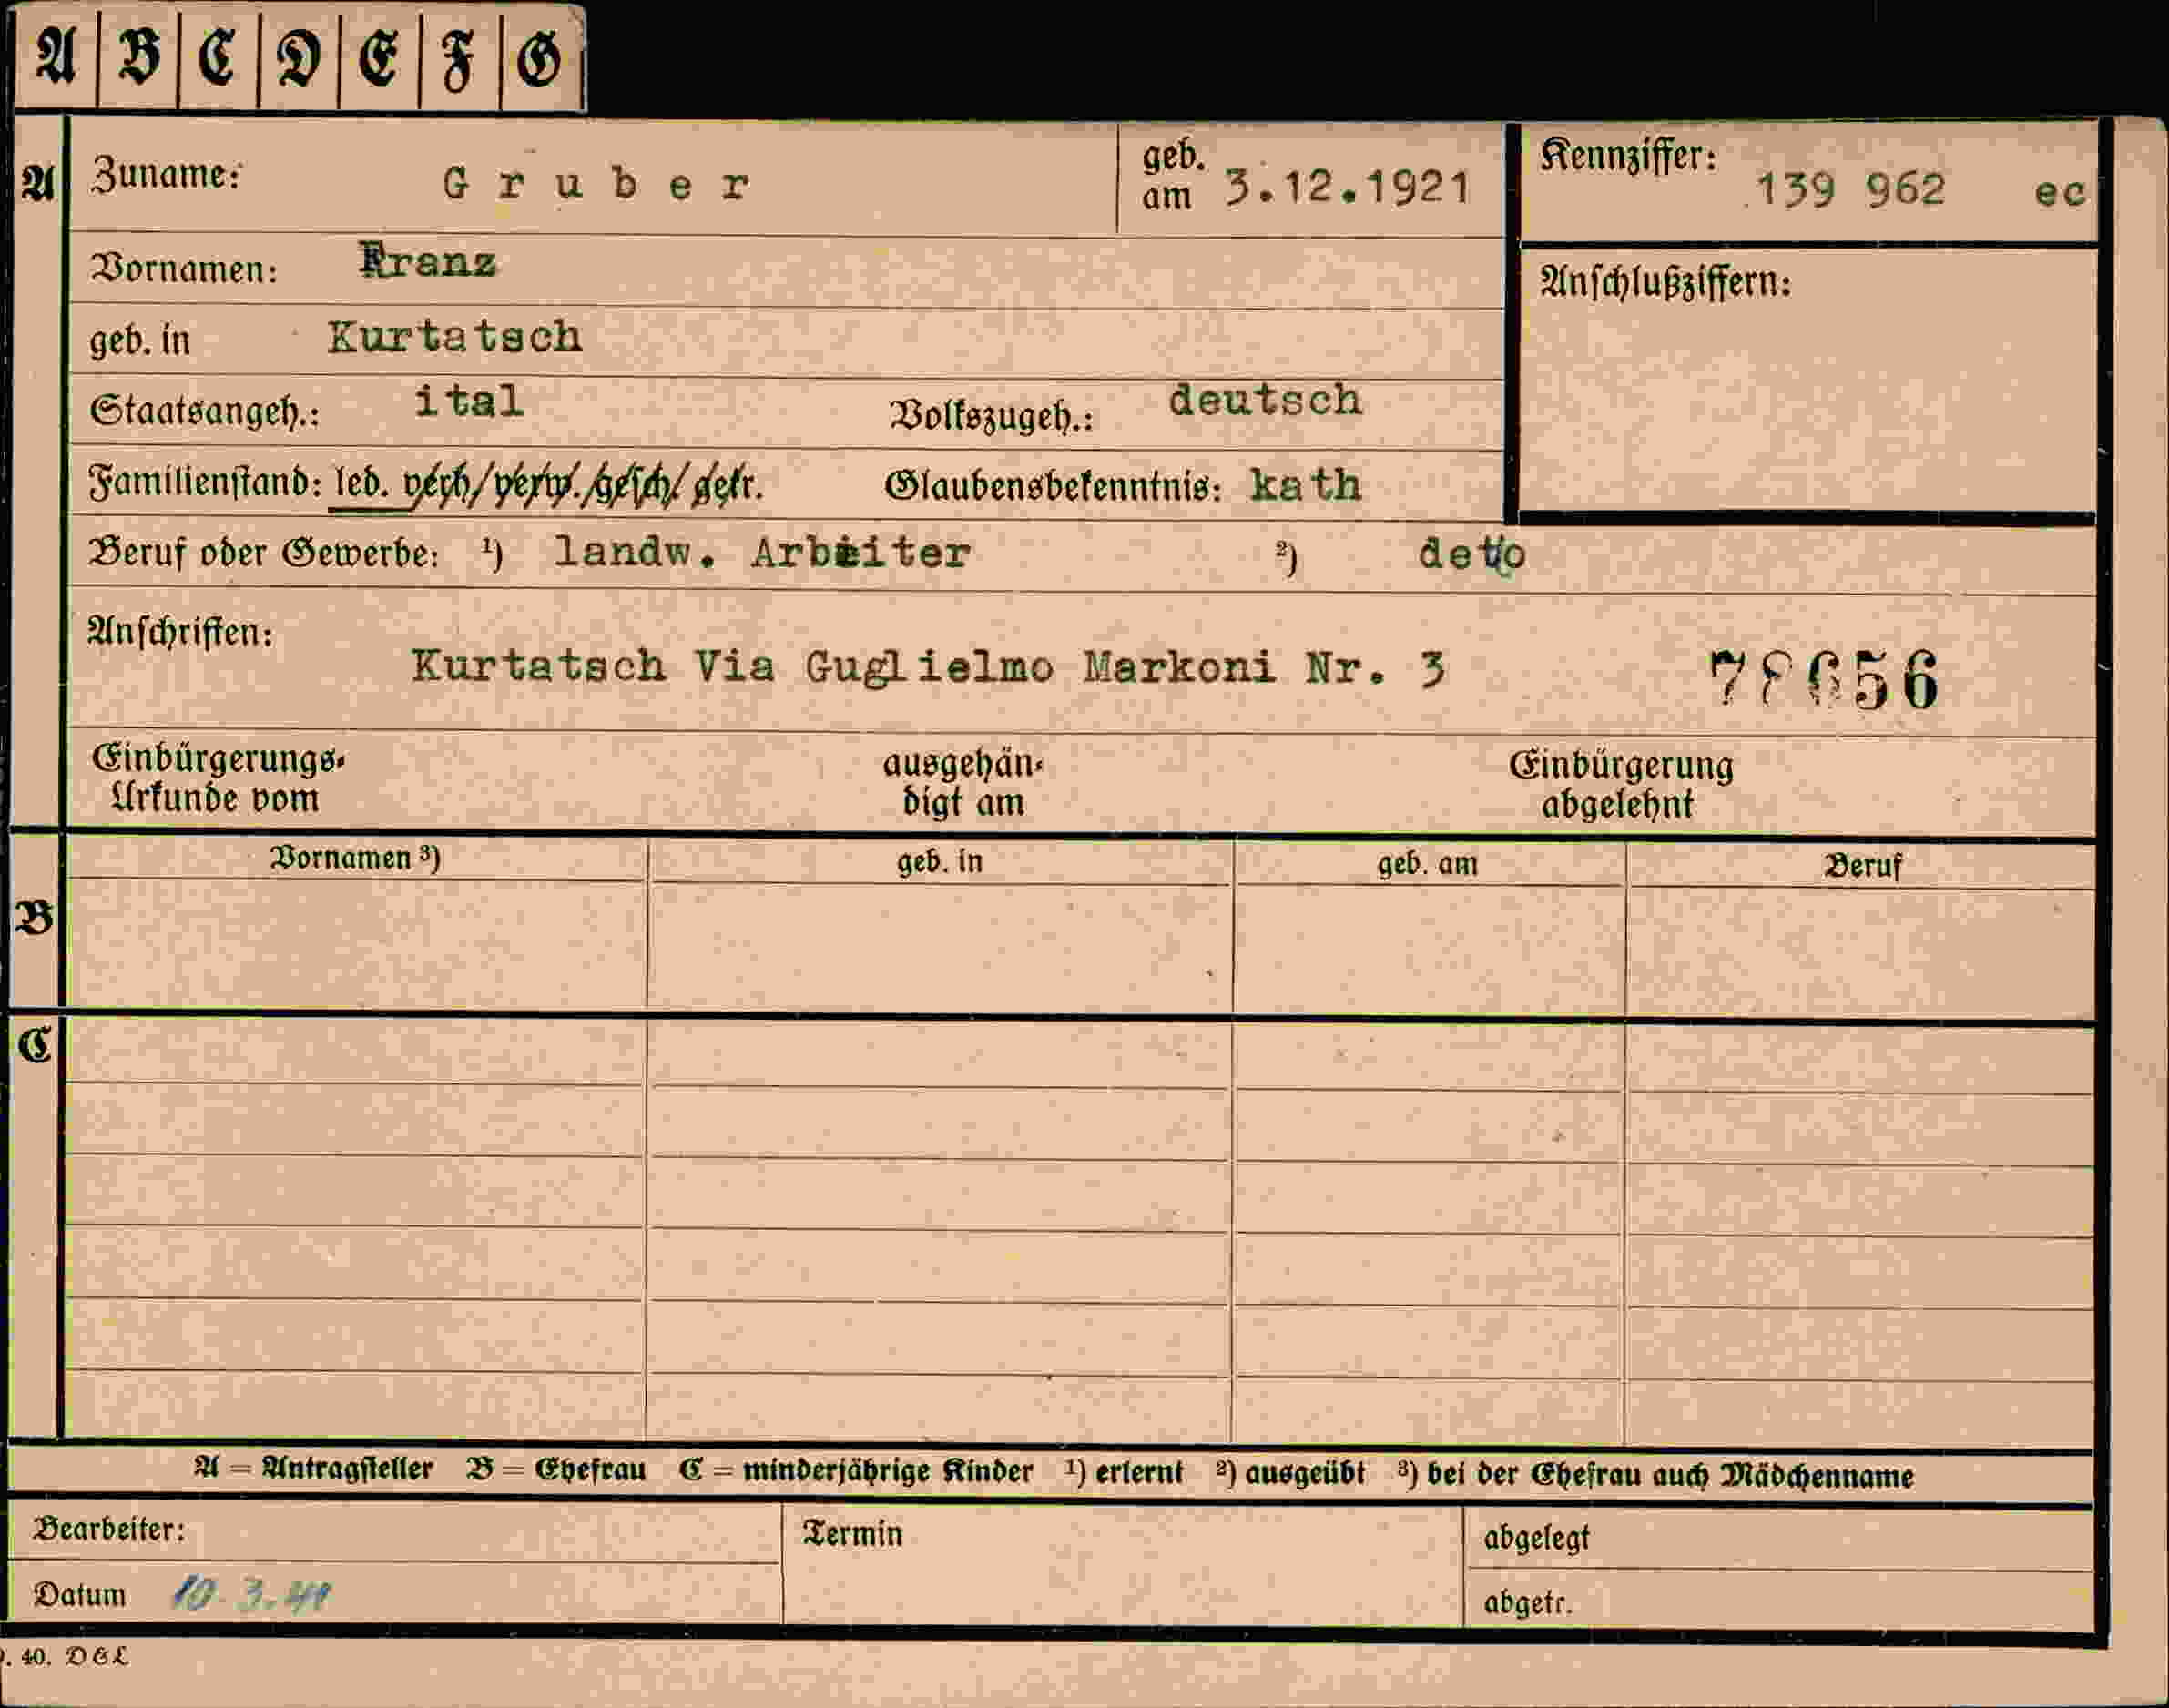 A B C D E F G
A Zuname: Gruber geb. am 3.12.1921 Kennziffer: 139 962 ec
Vornamen: Franz
Anschlußziffern:
geb. in Kurtatsch
Staatsangeh.: ital Volkszugeh.: deutsch
Familienstand: led. verh/verw./gesch/getr. Glaubensbekenntnis: kath
Beruf oder Gewerbe: ¹) landw. Arbeiter ²) deto
Anschriften:
Kurtatsch Via Guglielmo Markoni Nr. 3 78656
Einbürgerungs- ausgehän- Einbürgerung
Urkunde vom digt am abgelehnt
Vornamen ³) geb. in geb. am Beruf
B
C
A = Antragsteller B = Ehefrau C = minderjährige Kinder ¹) erlernt ²) ausgeübt ³) bei der Ehefrau auch Mädchenname
Bearbeiter: Termin abgelegt
Datum 10.3.41 abgetr.
. 40. D&L